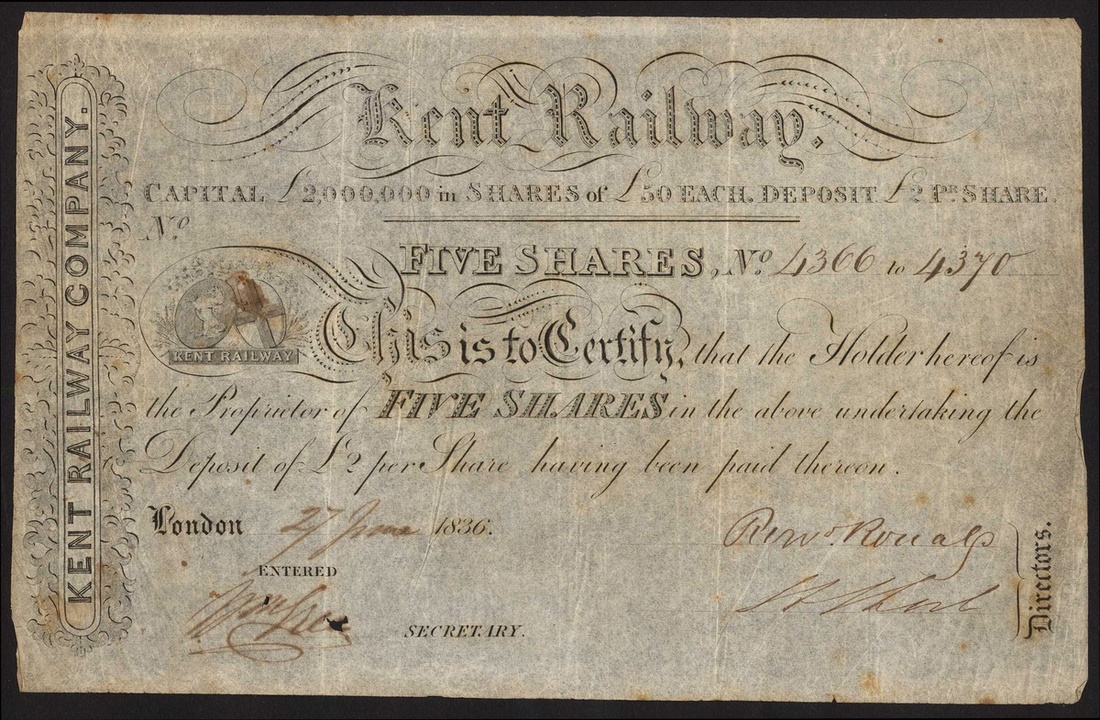 KENT RAILWAY COMPANY.
Kent Railway.
CAPITAL £2,000,000 in SHARES of £50 EACH. DEPOSIT £2 Pr. SHARE.
No
FIVE SHARES, No 4366 to 4370
KENT RAILWAY
This is to Certify, that the Holder hereof is
the Proprietor of FIVE SHARES in the above undertaking the
Deposit of £2 per Share having been paid thereon.
London 27 June 1836.
ENTERED
SECRETARY.
Directors.